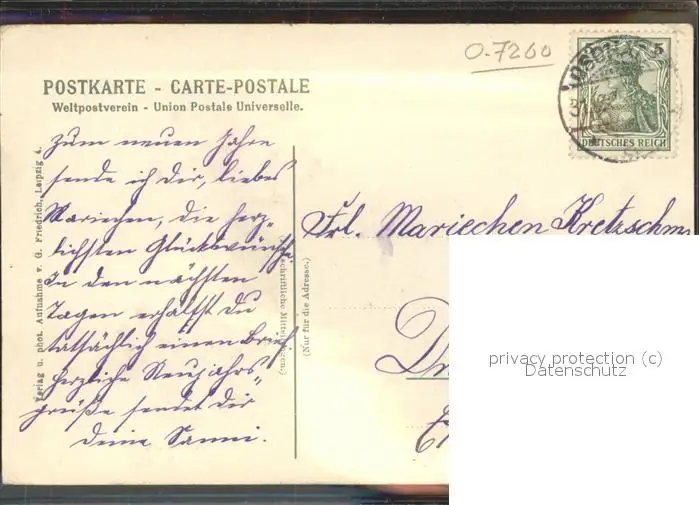 O-7260
POSTKARTE - CARTE-POSTALE
Weltpostverein - Union Postale Universelle.
DEUTSCHES REICH
5
Zum neuen Jahre
sende ich dir, liebes
Mariechen, die herz-
lichsten Glückwünsche.
In den nächsten
Tagen erhälst du
tatsächlich einen Brief.
Herzliche Neujahrs-
grüße sendet dir
deine Sanni.
Verlag u. phot. Aufnahme v. G. Friedrich, Leipzig 4.
(Nur für die Adresse.)
Frl. Mariechen Kretzschm
privacy protection (c)
Datenschutz